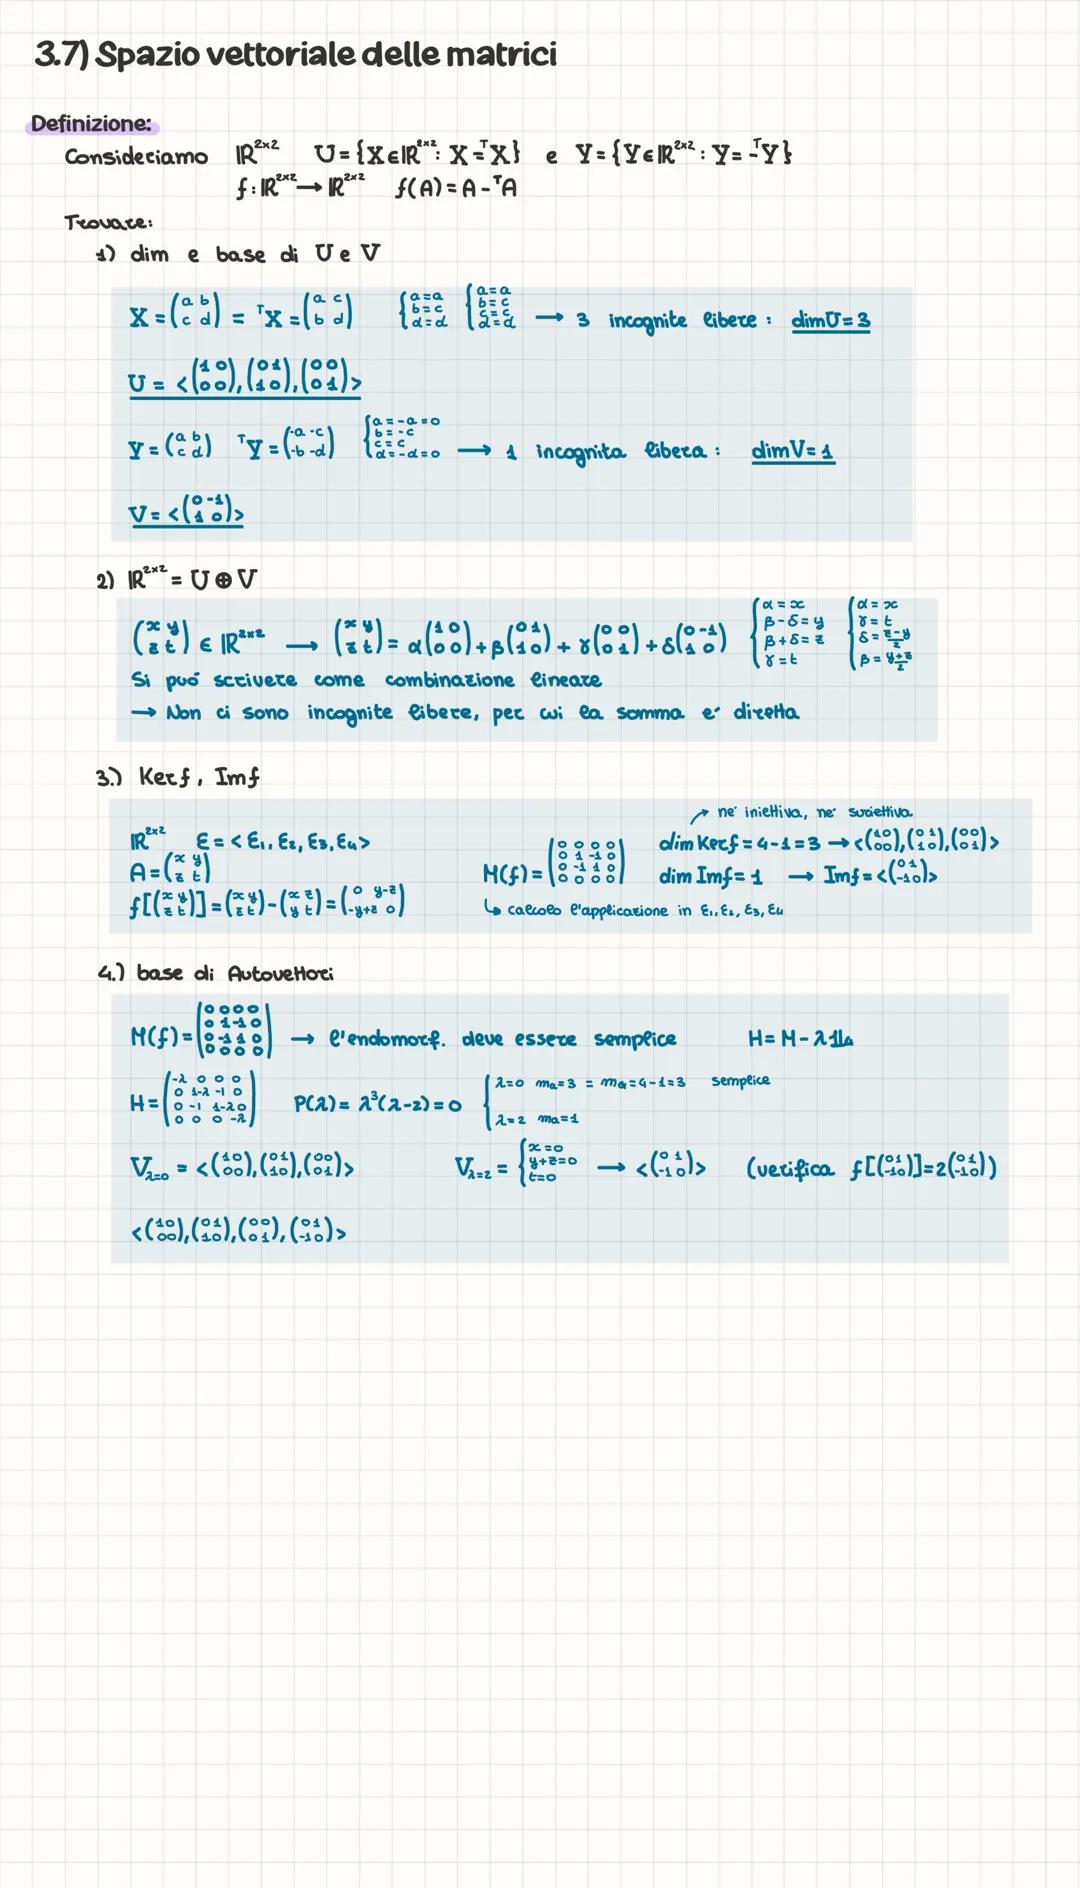 3.7) Spazio vettoriale delle matrici
Definizione:
Consideriamo ℝ²ˣ² U={X∈ℝ²ˣ²: X=ᵀX} e Y={Y∈ℝ²ˣ²: Y=-ᵀY}
f: ℝ²ˣ² → ℝ²ˣ² f(A)=A-ᵀA
Trovare:
1) dim e base di U e V
X=(a b; c d) = ᵀX=(a c; b d) {a=a; b=c; d=d {a=a; b=c; c=c; d=d → 3 incognite libere: dimU=3
U=<(1 0; 0 0),(0 1; 1 0),(0 0; 0 1)>
Y=(a b; c d) ᵀY=(-a -c; -b -d) {a=-a=0; b=-c; c=c; d=-d=0 → 1 incognita libera: dimV=1
V=<(0 -1; 1 0)>
2) ℝ²ˣ² = U⊕V
(x y; z t) ∈ ℝ²ˣ² → (x y; z t)=α(1 0; 0 0)+β(0 1; 1 0)+γ(0 0; 0 1)+δ(0 -1; 1 0) {α=x; β-δ=y; β+δ=z; γ=t {α=x; γ=t; δ=z-y/2; β=y+z/2
Si puó scrivere come combinazione lineare
→ Non ci sono incognite libere, per cui la somma e' diretta
3.) Kerf, Imf
né iniettiva, né suriettiva
ℝ²ˣ² ε=<ε₁, ε₂, ε₃, ε₄>
A=(x y; z t)
f[(x y; z t)]=(x y; z t)-(x z; y t)=(0 y-z; -y+z 0)
M(f)=(0 0 0 0; 0 1 -1 0; 0 -1 1 0; 0 0 0 0)
↳ calcolo l'applicazione in ε₁, ε₂, ε₃, ε₄
dim Kerf=4-1=3 → <(1 0; 0 0),(0 1; 1 0),(0 0; 0 1)>
dim Imf=1 → Imf=<(0 1; -1 0)>
4.) base di Autovettori
M(f)=(0 0 0 0; 0 1 -1 0; 0 -1 1 0; 0 0 0 0) → l'endomorf. deve essere semplice H=M-λ𝟙₄
H=(-λ 0 0 0; 0 1-λ -1 0; 0 -1 1-λ 0; 0 0 0 -λ) P(λ)=λ³(λ-2)=0 {λ=0 ma=3 = mg=4-1=3 semplice; λ=2 ma=1
V_λ=0 = <(1 0; 0 0),(0 1; 1 0),(0 0; 0 1)> V_λ=2 = {x=0; y+z=0; t=0 → <(0 1; -1 0)> (verifica f[(0 1; -1 0)]=2(0 1; -1 0))
<(1 0; 0 0),(0 1; 1 0),(0 0; 0 1),(0 1; -1 0)>